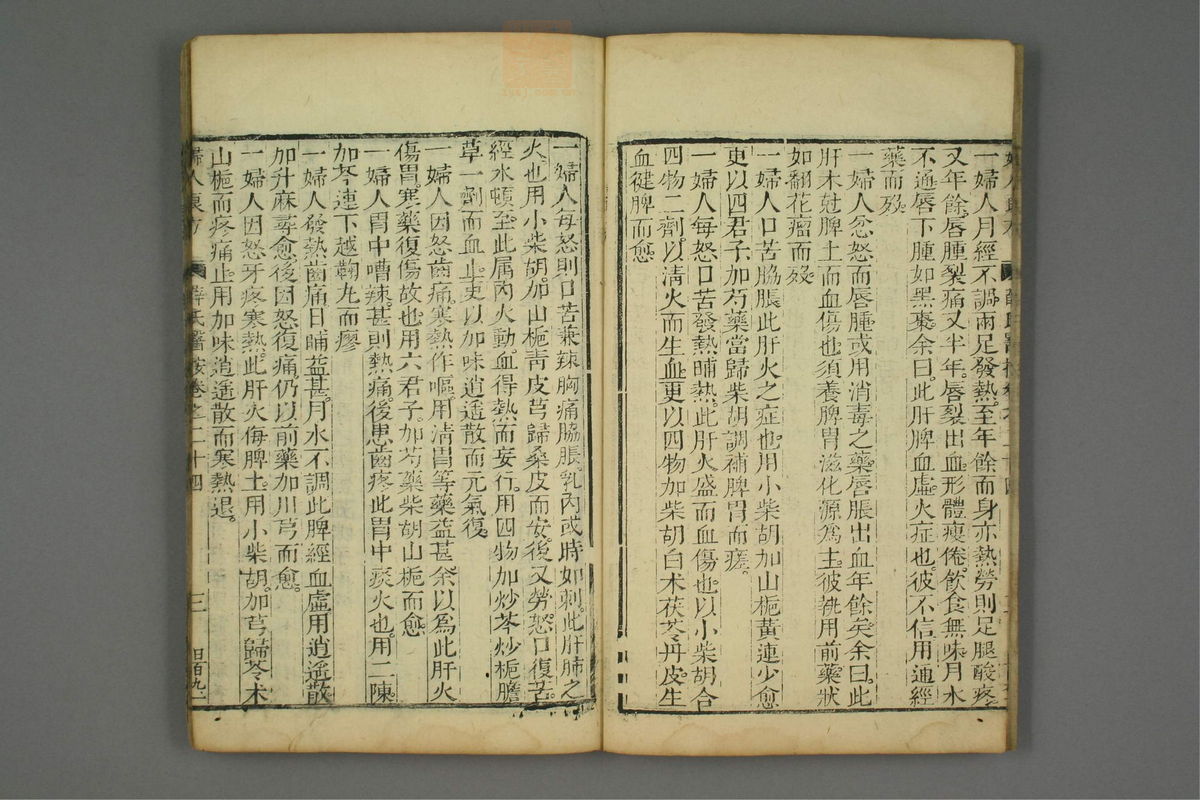 一婦人月經不調兩足發熱至年餘而身亦熱勞則足腿酸疼
又年餘唇腫裂痛又半年唇裂出血形體瘦倦飲食無味月水
不通唇下腫如黑棗余曰此肝脾血虛火症也彼不信用通經
藥而歿
一婦人忿怒而唇腫或用消毒之藥唇脹出血年餘矣余曰此
肝木尅脾土而血傷也須養脾胃滋化源為主彼執用前藥狀
如翻花瘤而歿
一婦人口苦脇脹此肝火之症也用小柴胡加山梔黃連少愈
更以四君子加芍藥當歸柴胡調補脾胃而瘥
一婦人每怒口苦發熱晡熱此肝火盛而血傷也以小柴胡合
四物二劑以清火而生血更以四物加柴胡白朮茯苓丹皮生
血健脾而愈
一婦人每怒則口苦兼辣胸痛脇脹乳內或時如刺此肝肺之
火也用小柴胡加山梔青皮芎歸桑皮而安後又勞怒口復苦
經水頓至此屬內火動血得熱而妄行用四物加炒芩炒梔膽
草一劑而血止更以加味逍遙散而元氣復
一婦人因怒齒痛寒熱作嘔用清胃等藥益甚余以為此肝火
傷胃寒藥復傷故也用六君子加芍藥柴胡山梔而愈
一婦人胃中嘈辣甚則熱痛後患齒疼此胃中痰火也用二陳
加芩連下越鞠丸而瘳
一婦人發熱齒痛日晡益甚月水不調此脾經血虛用逍遙散
加升麻尋愈後因怒復痛仍以前藥加川芎而愈
一婦人因怒牙疼寒熱此肝火侮脾土用小柴胡加芎歸苓朮
山梔而疼痛止用加味逍遙散而寒熱退
婦人良方 薛氏醫按卷之二十四